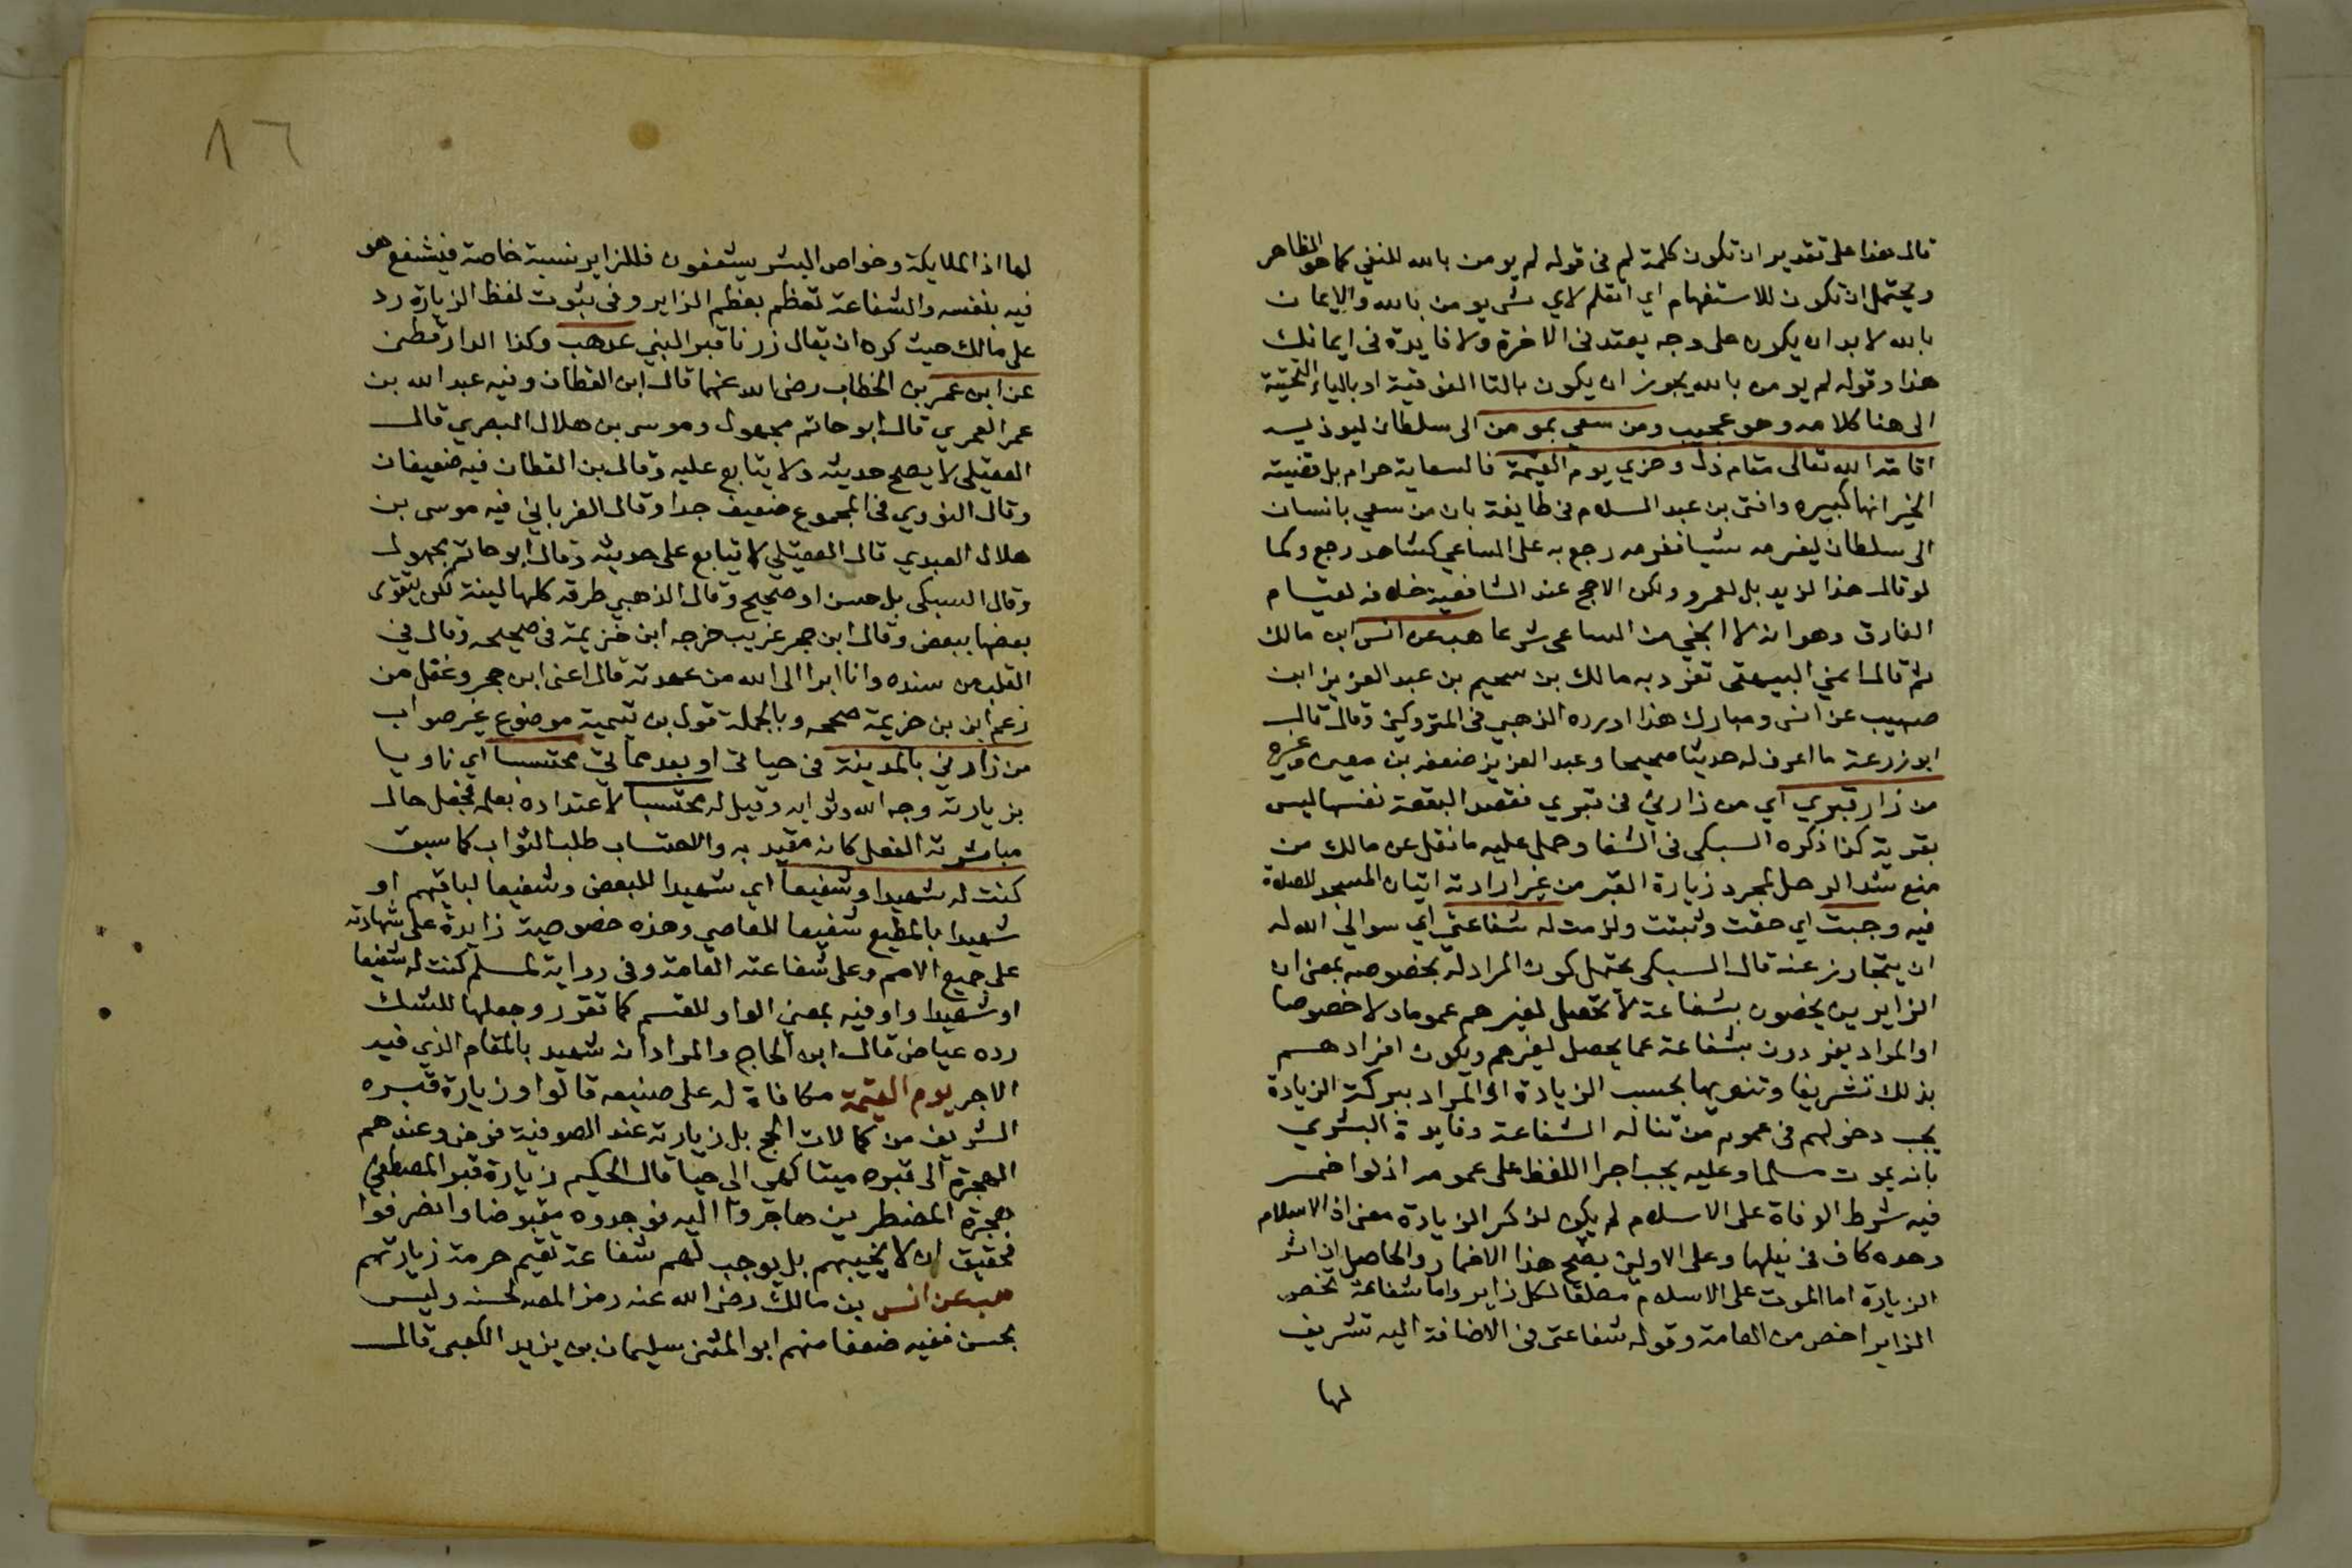 قال هذا على تقدير ان تكون كلمة لم فى قوله لم يومن بالله للنفي كما هو الظاهر
ويحتمل ان تكون للاستفهام اي اتعلم لاي شى يومن بالله والايمان
بالله لا بد ان يكون على وجه يعتد فى الاخرة ولا فايدة فى ايمانك
هذا وقوله لم يومن بالله يجوز ان يكون بالتا الفوقية او بالياء التحتية
الى هنا كلامه وهو عجيب ومن سعي بمومن الى سلطان ليوذيه
اقامه الله تعالى مقام ذل وخزي يوم القيمة فالسعاية حرام بل قضية
الخبر انها كبيره وافتى بن عبد السلام فى طايفة بان من سعي بانسان
الى سلطان ليغرمه شيا فغرمه رجع به على الساعي كشاهد رجع وكما
لو قال هذا لزيد بل لعمرو ولكن الارجح عند الشافعية خلافه لقيام
الفارق وهو انه لا الجي من الساعى شرعا هب عن انس ابن مالك
ثم قال اعني البيهقى تفرد به مالك بن سحيم بن عبد العزيز ابن
صهيب عن انس ومبارك هذا اورده الذهبي فى المتروكين وقال قال
ابو زرعة ما اعرف له حديثا صحيحا وعبد العزيز ضعفه بن معين وغيره
من زار قبري اي من زارني فى قبري فقصد البقعة نفسها ليس
بقربة كذا ذكره السبكى فى الشفا وحمل عليه ما نقل عن مالك من
منع شد الرحل لمجرد زيارة القبر من غير ارادته اتيان المسجد للصلاة
فيه وجبت اي حقت وثبتت ولزمت له شفاعتي اي سوالي الله له
ان يتجاوز عنه قال السبكى يحتمل كون المراد له بخصوصه بمعنى ان
الزايرين يخصون بشفاعة لا تحصل لغيرهم عموما ولا خصوصا
او المراد يفردون بشفاعة عما يحصل لغيرهم ويكون افرادهم
بذلك تشريفا وتنويها بحسب الزيادة او المراد ببركة الزيادة
يجب دخولهم فى عموم من تناله الشفاعة وفايدة البشري
بانه يموت مسلما وعليه يجب اجرا اللفظ على عمومه اذ لو اضمر
فيه شرط الوفاة على الاسلام لم يكن لذكر الزيادة معنى اذ الاسلام
وحده كاف فى نيلها وعلى الاولين يصح هذا الاضمار والحاصل ان اثر
الزيارة اما الموت على الاسلام مطلقا لكل زاير واما شفاعة تخص
الزاير اخص من العامة وقوله شفاعتى فى الاضافة اليه تشريف
لها
٨٦
لها اذ الملايكة وخواص البشر يشفعون فللزاير نسبة خاصة فيشفع هو
فيه بنفسه والشفاعة تعظم بعظم الزاير وفى ثبوت لفظ الزيارة رد
على مالك حيث كره ان يقال زرنا قبر النبي عد هب وكذا الدارقطنى
عن ابن عمر بن الخطاب رضى الله عنهما قال ابن القطان وفيه عبد الله بن
عمر العمري قال ابو حاتم مجهول وموسى بن هلال البصري قال
العقيلى لا يصح حديثه ولا يتابع عليه وقال بن القطان فيه ضعيفان
وقال النووي فى المجموع ضعيف جدا وقال الغرياني فيه موسى بن
هلال العبدي قال العقيلي لا يتابع على حديثه وقال ابو حاتم مجهول
وقال السبكى بل حسن او صحيح وقال الذهبي طرقه كلها لينة لكن يتقوى
بعضها ببعض وقال ابن حجر غريب خرجه ابن خزيمة فى صحيحه وقال فى
القلب من سنده وانا ابرا الى الله من عهدته قال اعنى ابن حجر وغفل من
زعم ان بن خزيمة صححه وبالجملة قول بن تيمية موضوع غير صواب
من زارني بالمدينة فى حياتى او بعد مماتي محتسبا اي ناويا
بزيارته وجه الله وثوابه وقيل له محتسبا لاعتداده بعلمه فجعل حال
مباشرته الفعل كانه مقيد به والاحتساب طلب الثواب كما سبق
كنت له شهيدا وشفيعا اي شهيدا للبعض وشفيعا لباقيهم او
شهيدا بالمطيع شفيعا للعاصي وهذه خصوصية زايدة على شهادته
على جميع الامم وعلى شفاعته العامة وفى رواية لمسلم كنت له شفيعا
او شهيدا واو فيه بمعنى الواو للقسم كما تقرر وجعلها للشك
رده عياض قال ابن الحاج والمراد انه شهيد بالمقام الذي فيه
الاجر يوم القيمة مكافاة له على صنيعه قالوا وزيارة قبره
الشريف من كمالات الحج بل زيارته عند الصوفية فرض وعندهم
الهجرة الى قبره ميتا كهي الى حيا قال الحكيم زيارة قبر المصطفى
هجرة المضطرين هاجروا اليه فوجدوه مقبوضا وانصرفوا
فحقيق ان لا يخيبهم بل يوجب لهم شفاعة تقيم حرمة زيارتهم
هب عن انس بن مالك رضى الله عنه رمز المص لحسنه وليس
بحسن ففيه ضعفا منهم ابو المثنى سليمان بن يزيد الكعبى قال